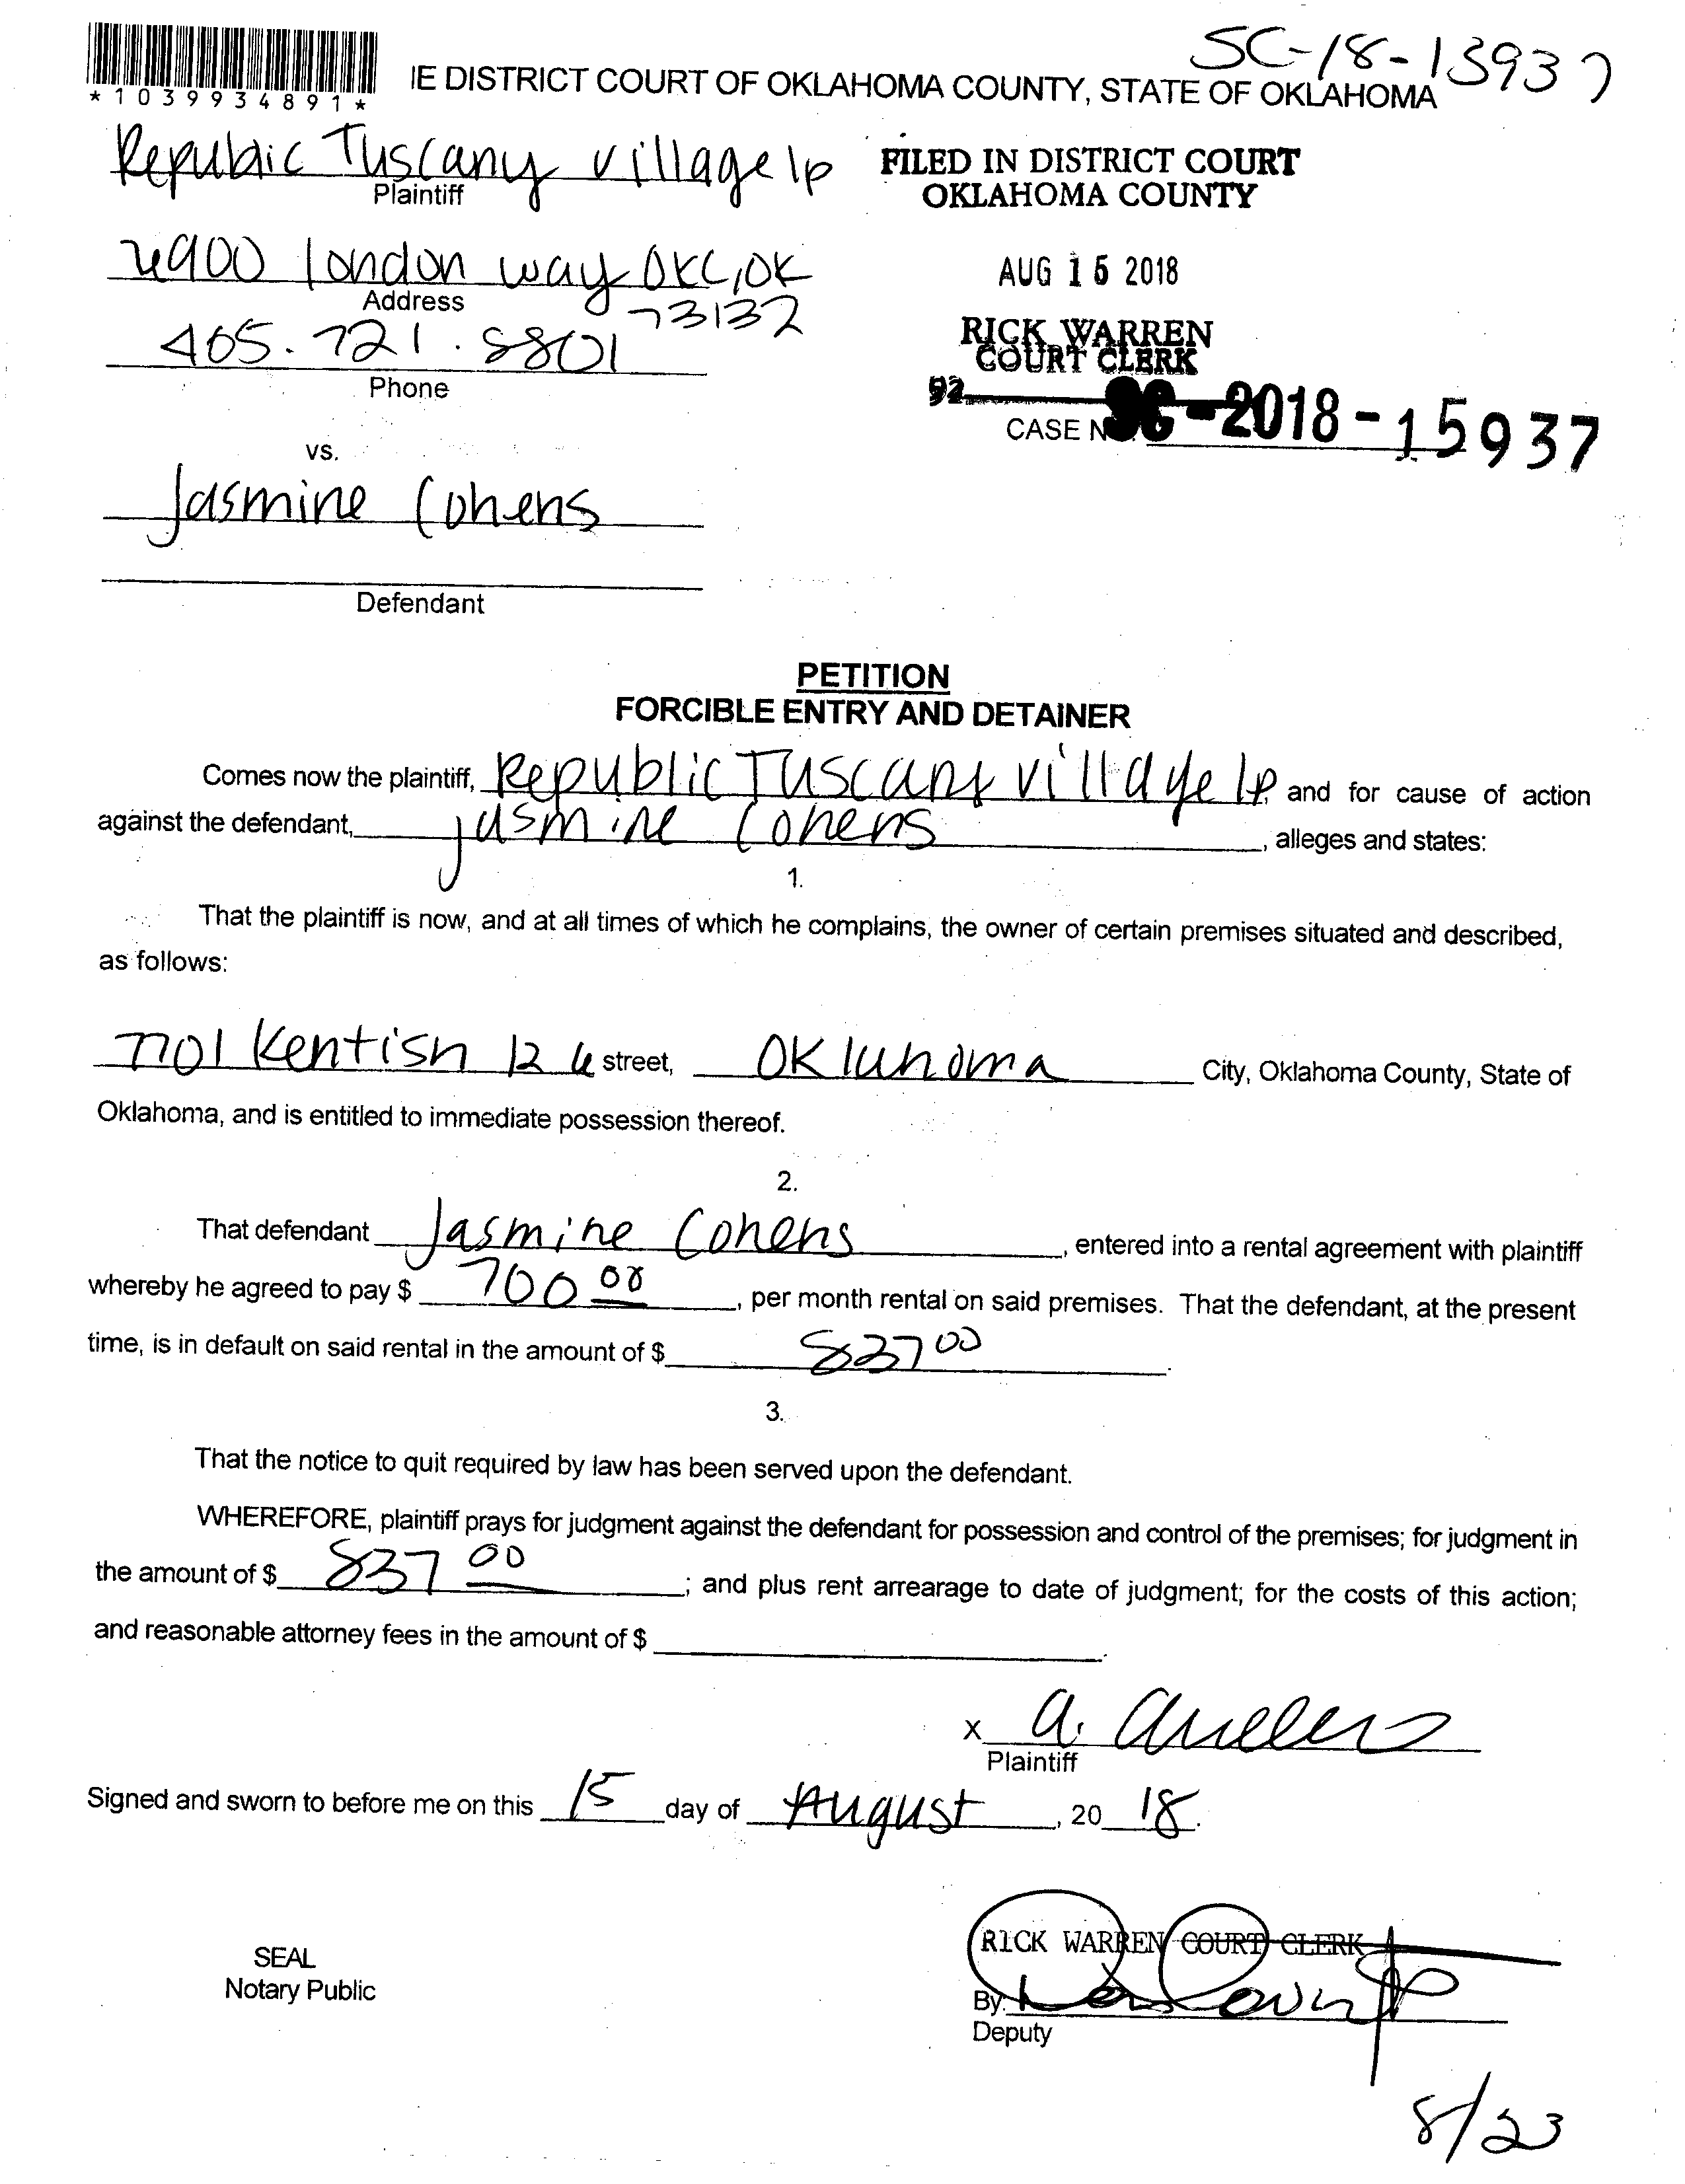 SC-18-15937
*1039934891*
IE DISTRICT COURT OF OKLAHOMA COUNTY, STATE OF OKLAHOMA
Republic Tuscany village lp
Plaintiff
FILED IN DISTRICT COURT
OKLAHOMA COUNTY
6900 london way OKC, OK
Address
73132
AUG 15 2018
405.721.8801
Phone
RICK WARREN
COURT CLERK
92
CASE N SC-2018-15937
vs.
Jasmine Cohens
Defendant
PETITION
FORCIBLE ENTRY AND DETAINER
Comes now the plaintiff, Republic Tuscany village lp, and for cause of action
against the defendant, Jasmine Cohens, alleges and states:
1.
That the plaintiff is now, and at all times of which he complains, the owner of certain premises situated and described,
as follows:
7701 Kentish street, Oklahoma City, Oklahoma County, State of
Oklahoma, and is entitled to immediate possession thereof.
2.
That defendant Jasmine Cohens, entered into a rental agreement with plaintiff
whereby he agreed to pay $ 700 00, per month rental on said premises. That the defendant, at the present
time, is in default on said rental in the amount of $ 837 00.
3.
That the notice to quit required by law has been served upon the defendant.
WHEREFORE, plaintiff prays for judgment against the defendant for possession and control of the premises; for judgment in
the amount of $ 837 00; and plus rent arrearage to date of judgment; for the costs of this action;
and reasonable attorney fees in the amount of $ .
x a.
Plaintiff
Signed and sworn to before me on this 15 day of August, 20 18.
RICK WARREN COURT CLERK
SEAL
Notary Public
By:
Deputy
8/23